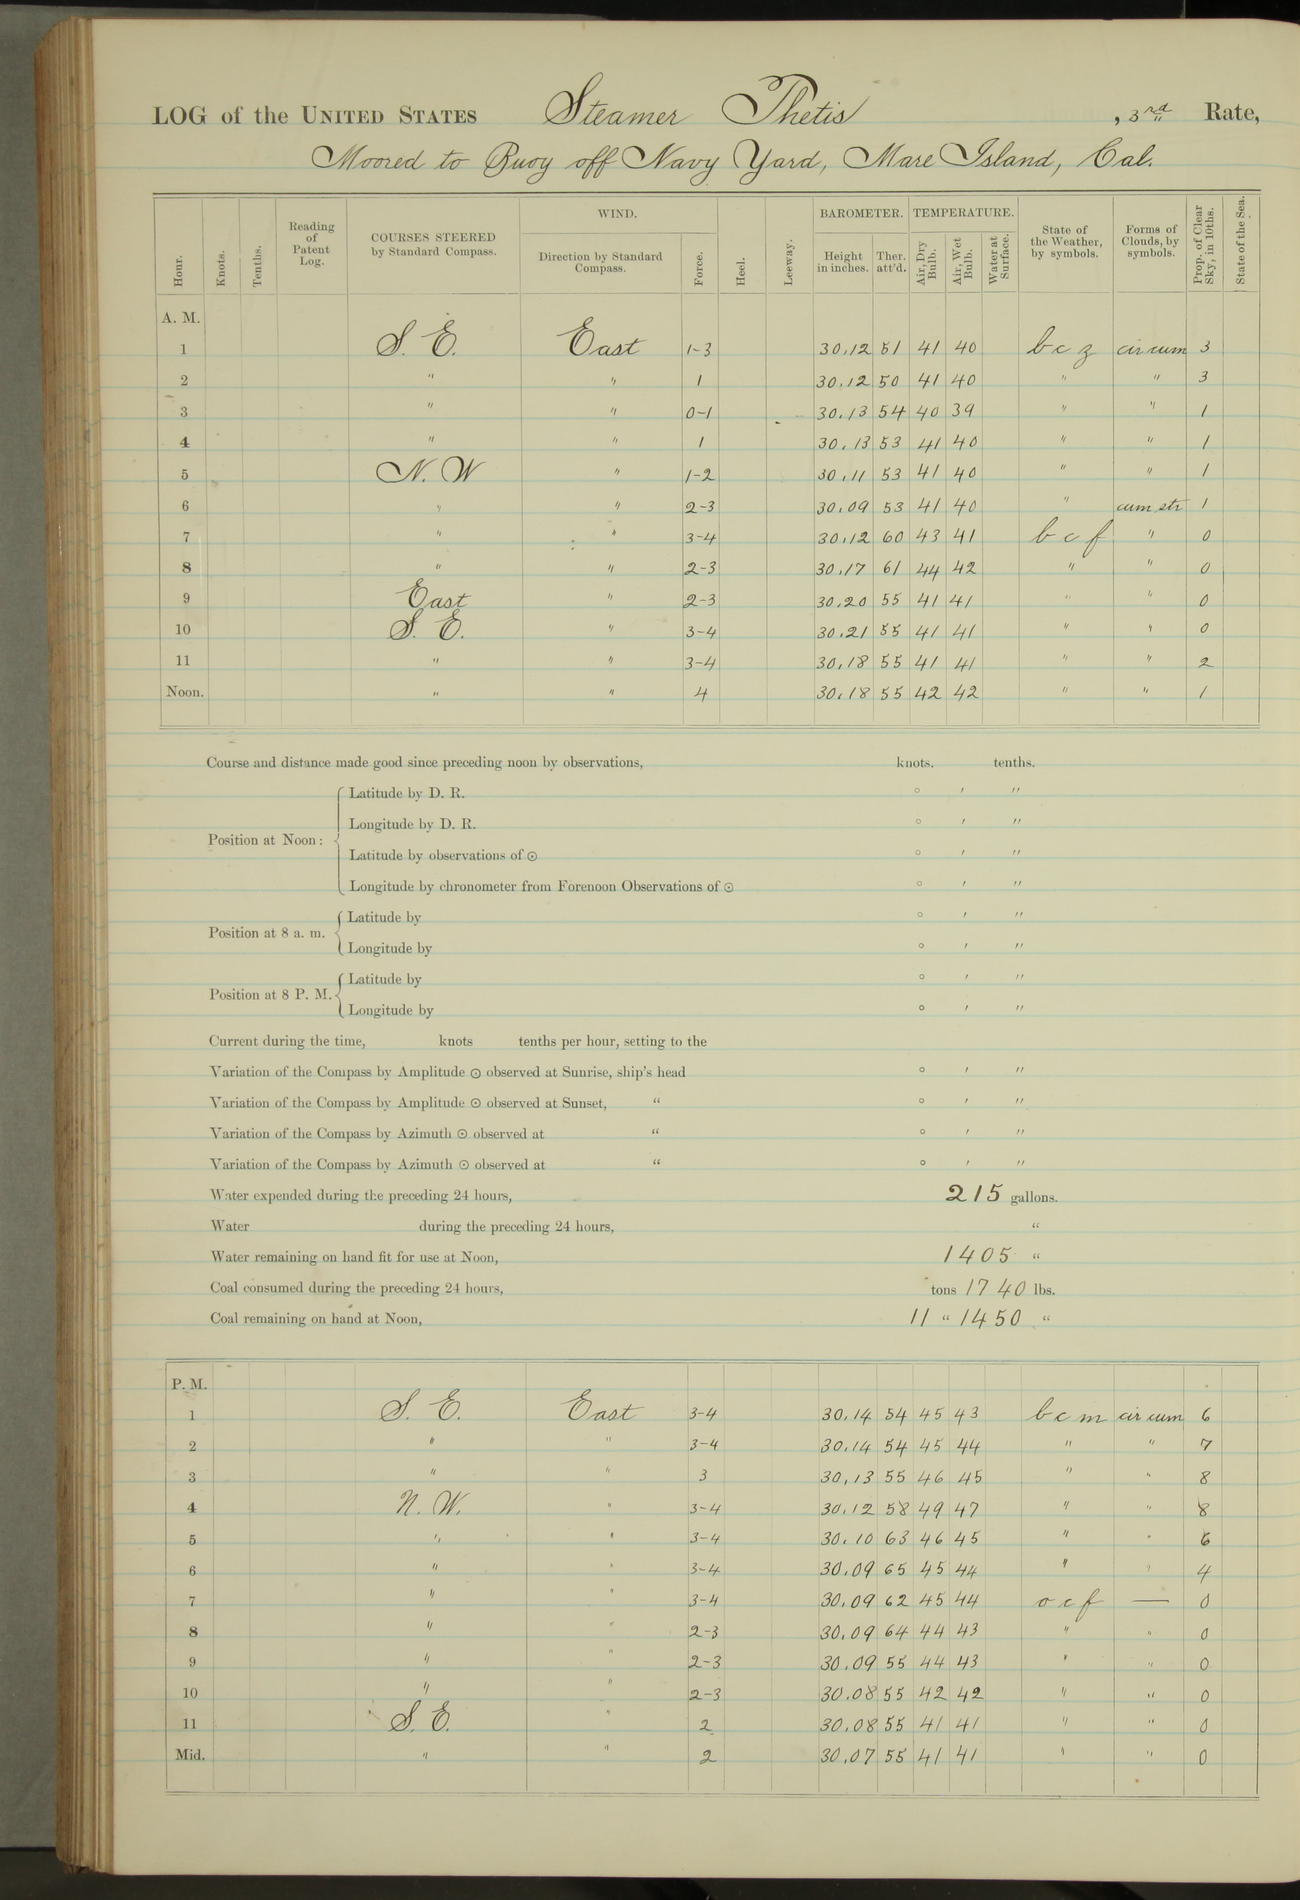 LOG of the UNITED STATES Steamer Thetis , 3rd Rate,
Moored to Buoy off Navy Yard, Mare Island, Cal.
Hour. Knots. Tenths. Reading of Patent Log. COURSES STEERED by Standard Compass. WIND. Direction by Standard Compass. Force. Heel. Leeway. BAROMETER. Height in inches. Ther. att'd. TEMPERATURE. Air, Dry Bulb. Air, Wet Bulb. Water at Surface. State of the Weather, by symbols. Forms of Clouds, by symbols. Prop. of Clear Sky, in 10ths. State of the Sea.
A. M.
1 S. E. East 1-3 30.12 51 41 40 b c z cir cum 3
2 " " 1 30.12 50 41 40 " " 3
3 " " 0-1 30.13 54 40 39 " " 1
4 " " 1 30.13 53 41 40 " " 1
5 N. W " 1-2 30.11 53 41 40 " " 1
6 " " 2-3 30.09 53 41 40 " cum str 1
7 " " 3-4 30.12 60 43 41 b c f " 0
8 " " 2-3 30.17 61 44 42 " " 0
9 East " 2-3 30.20 55 41 41 " " 0
10 S. E. " 3-4 30.21 55 41 41 " " 0
11 " " 3-4 30.18 55 41 41 " " 2
Noon. " " 4 30.18 55 42 42 " " 1
Course and distance made good since preceding noon by observations, knots. tenths.
Position at Noon: Latitude by D. R. ° ′ ″
Longitude by D. R. ° ′ ″
Latitude by observations of ☉ ° ′ ″
Longitude by chronometer from Forenoon Observations of ☉ ° ′ ″
Position at 8 a. m. Latitude by ° ′ ″
Longitude by ° ′ ″
Position at 8 P. M. Latitude by ° ′ ″
Longitude by ° ′ ″
Current during the time, knots tenths per hour, setting to the
Variation of the Compass by Amplitude ☉ observed at Sunrise, ship's head ° ′ ″
Variation of the Compass by Amplitude ☉ observed at Sunset, “ ° ′ ″
Variation of the Compass by Azimuth ☉ observed at “ ° ′ ″
Variation of the Compass by Azimuth ☉ observed at “ ° ′ ″
Water expended during the preceding 24 hours, 215 gallons.
Water during the preceding 24 hours, “
Water remaining on hand fit for use at Noon, 1405 “
Coal consumed during the preceding 24 hours, tons 1740 lbs.
Coal remaining on hand at Noon, 11 “ 1450 “
P. M.
1 S. E. East 3-4 30.14 54 45 43 b c m cir cum 6
2 " " 3-4 30.14 54 45 44 " " 7
3 " " 3 30.13 55 46 45 " " 8
4 N. W. " 3-4 30.12 58 49 47 " " 8
5 " " 3-4 30.10 63 46 45 " " 6
6 " " 3-4 30.09 65 45 44 " " 4
7 " " 3-4 30.09 62 45 44 o c f — 0
8 " " 2-3 30.09 64 44 43 " " 0
9 " " 2-3 30.09 55 44 43 " " 0
10 " " 2-3 30.08 55 42 42 " " 0
11 S. E. " 2 30.08 55 41 41 " " 0
Mid. " " 2 30.07 55 41 41 " " 0